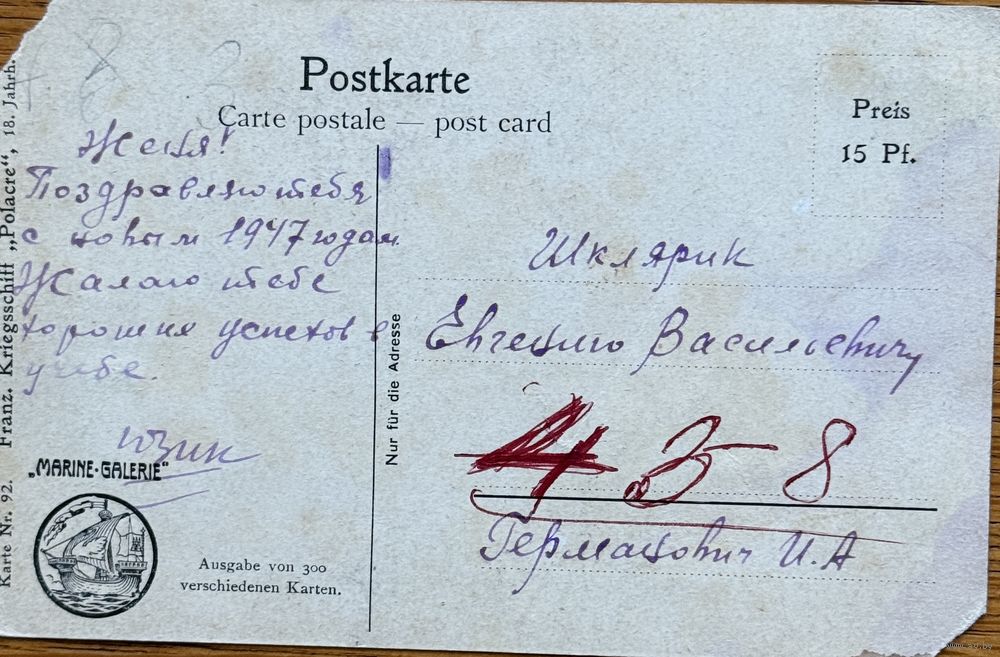 Postkarte
Carte postale — post card
Preis
15 Pf.
Женя!
Поздравляю тебя
с новым 1947 годом.
Жалаю тебе
хорошия успехов в
учебе.
Юзик
„MARINE-GALERIE“
Ausgabe von 300
verschiedenen Karten.
Karte Nr. 92. Franz. Kriegsschiff „Polacre“, 18. Jahrh.
Nur für die Adresse
Шклярик
Евгению Васильевичу
4.
3 8
Германович И.А